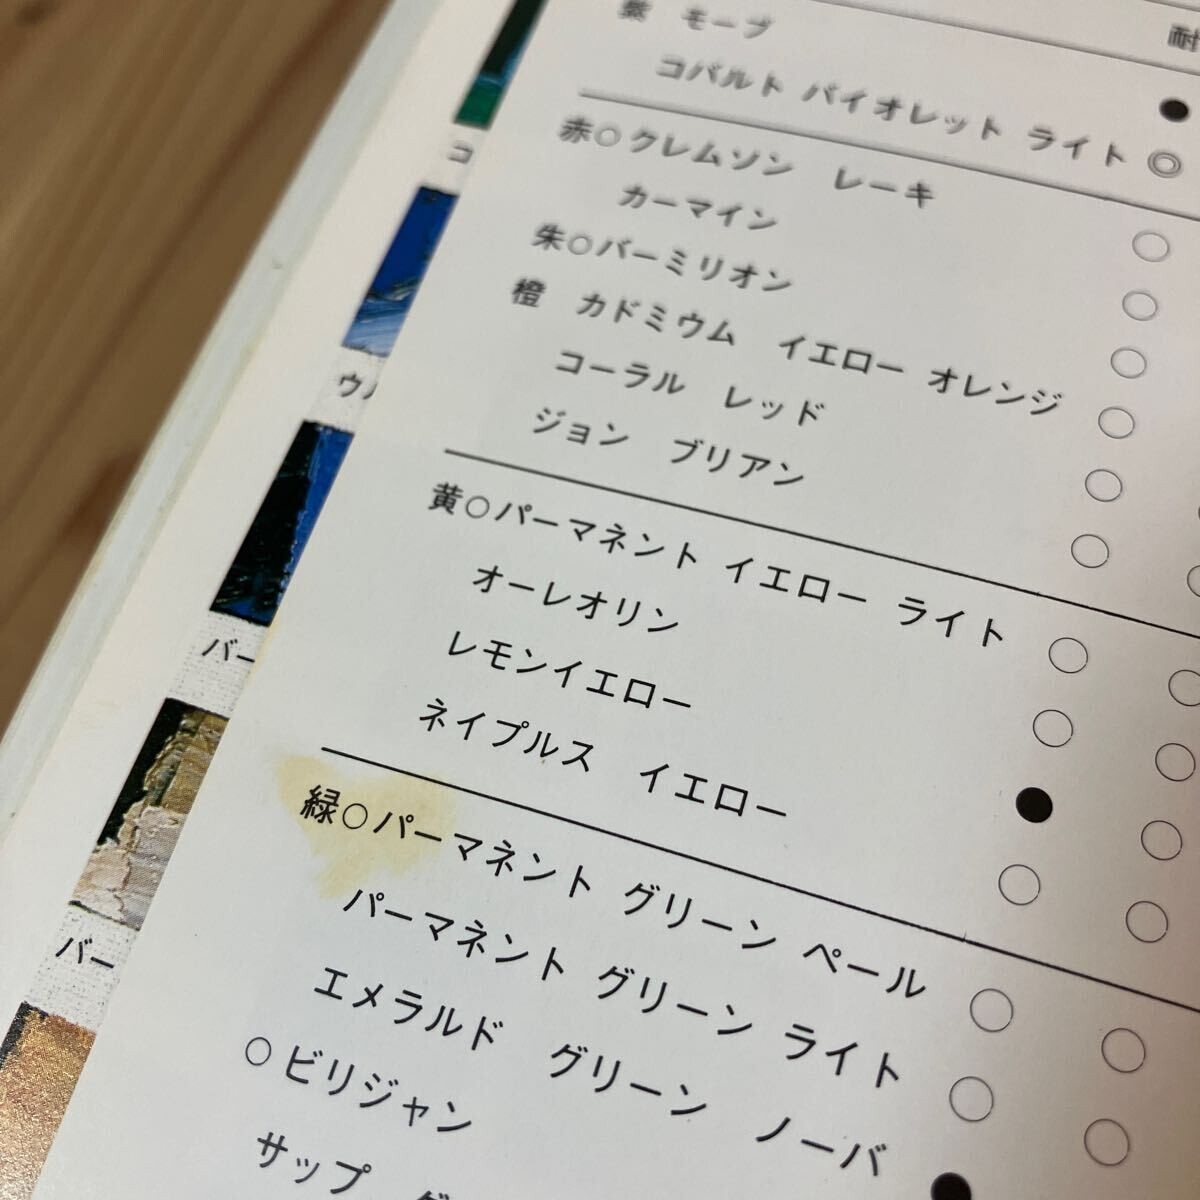 紫 モーブ 耐
コバルト バイオレット ライト ● ◎
赤○クレムソン レーキ ○
カーマイン ○
朱○バーミリオン ○
橙 カドミウム イエロー オレンジ ○
コーラル レッド ○
ジョン ブリアン ○
黄○パーマネント イエロー ライト ○ ○
オーレオリン ○ ○
レモンイエロー ● ○
ネイプルス イエロー ○ ○
緑○パーマネント グリーン ペール ○ ○
パーマネント グリーン ライト ○ ○
エメラルド グリーン ノーバ ●
○ビリジャン
サップ
コ
ウル
バー
バー